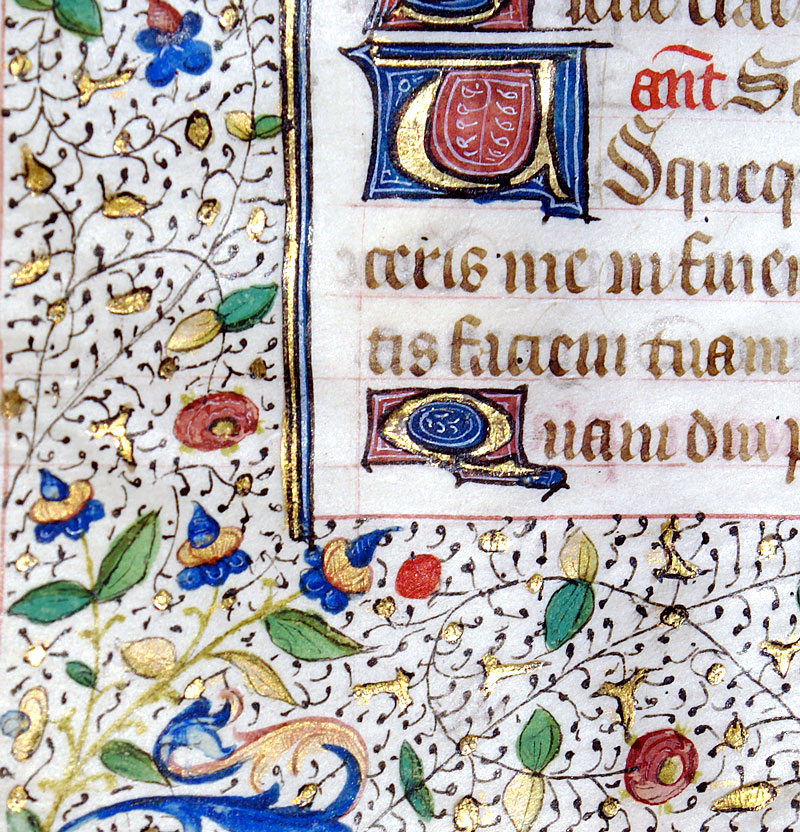 ant̄ Se
USqueq
ceris me in finem
tis faciem tuam
Quam diu p